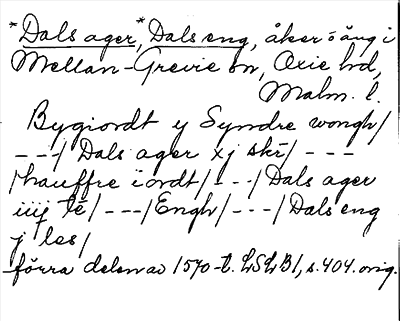 *Dals ager, *Dals eng, åker o äng i
Mellan-Grevie sn, Oxie hd,
Malm. l.
Bygiordt y Syndre wongh/
---/ Dals ager xj skr/ ---
/hauffre iordt/ ---/ Dals ager
iiij le/ ---/ Engh/ ---/ Dals eng
j les/
förra delen av 1570-t. LSLB1, s. 404. orig.